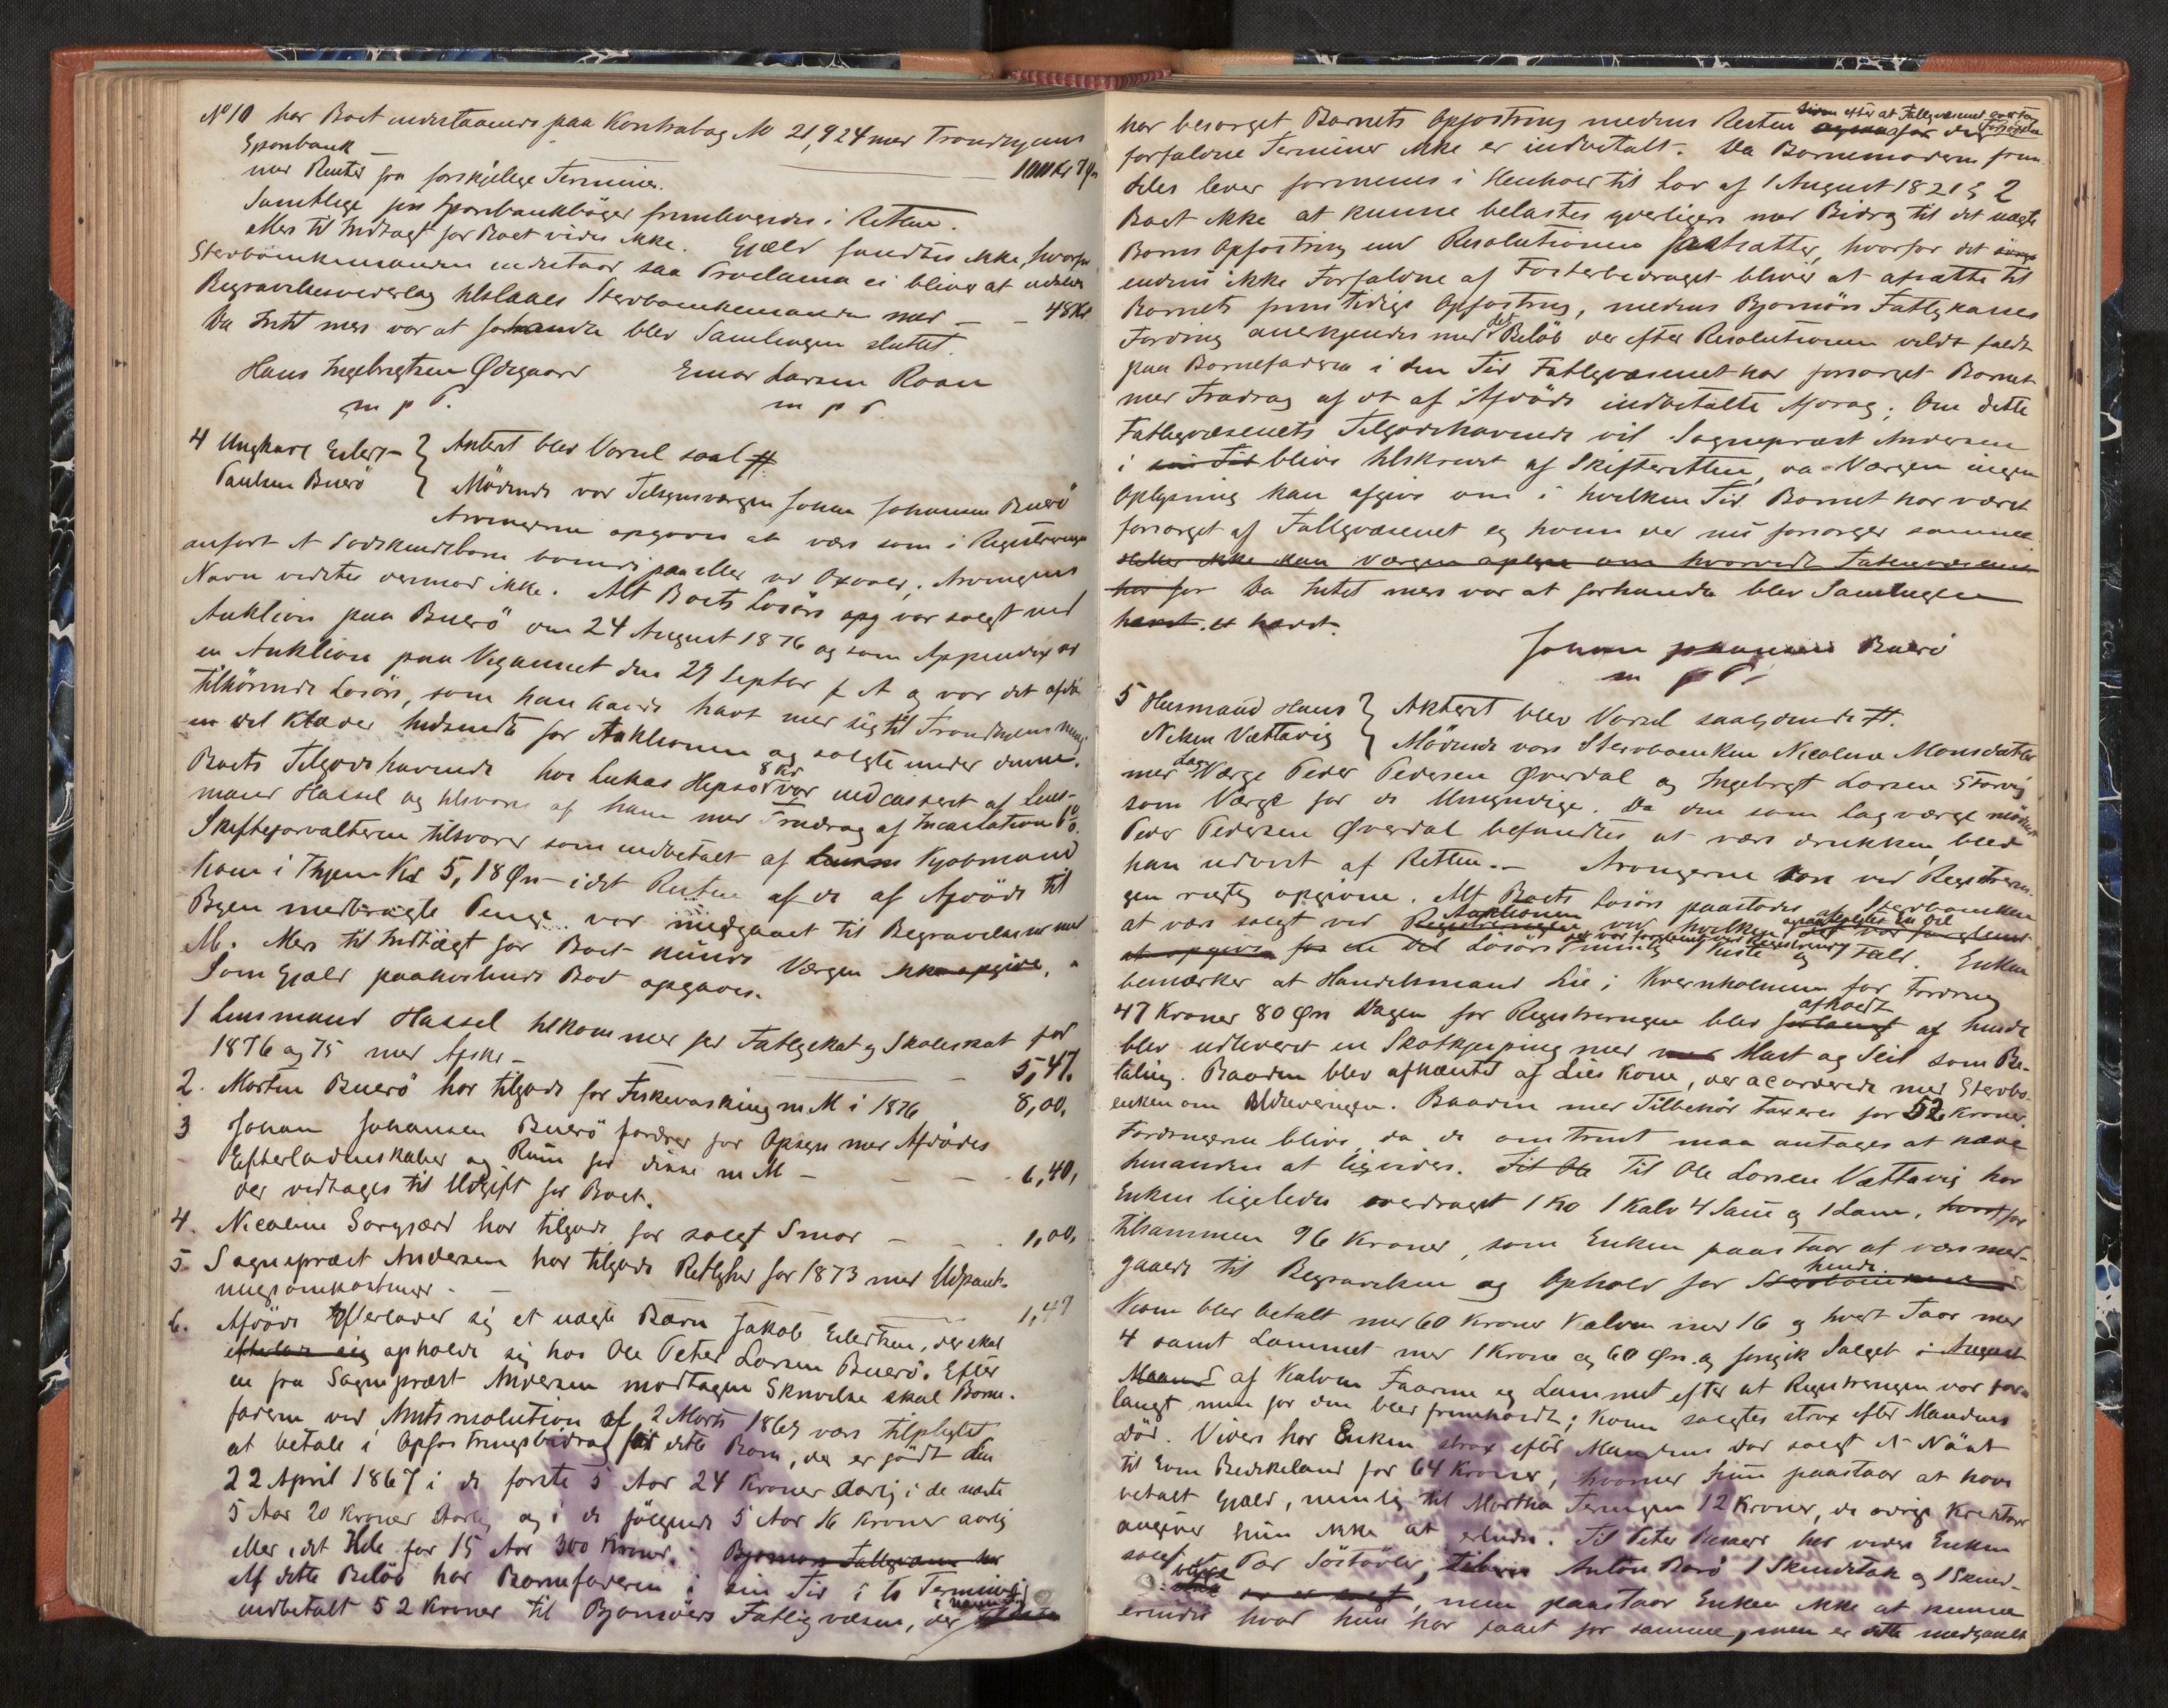 No 10 har Boet indestaaende paa Kontrabog No 21,924 med Trondhjems
Sparebank 1000 Kr 7 Ør
med Renter fra forskjellige Terminer.
Samtlige Sparebankbøger fremlagdes i Retten.
Mere til Indtægt for Boet vides ikke. Gjæld fandtes ikke, hvorfor
Stervboenkemanden indestaar, saa Proclama ei bliver at udstede
Begravelsesvederlag tilstaaes Stervboenkemanden med — 48 Kr
Da Intet mere var at forhandle blev Samlingen sluttet.
Hans Ingebrigtsen Ødegaard Einar Larsen Roan
m p P. m p P.
4 Ungkarl Eilert Paulsen Buerø } Akteret blev Varsel saal #
Mødende var Tilsynsværgen Johan Johansen Buerø
Arvingerne opgaves at være som i Registreringen
anført et Sødskendebarn boende paa eller ved Oxvold; Arvingens
Navn vidstes dermod ikke. Alt Boets Løsøre var solgt ved
Auktion paa Buerø den 24 August 1876 og som Appendix ved
en Auktion paa den 29 Septbr f A og var det afdøde
tilhørende Løsøre, som han havde havt med sig til Trondhjem
en del Klæder indsendte før Auktionen og solgte under denne.
Boets Tilgodehavende hos Lukas Hepsø 8 Kr var indcasseret af Lens-
mand Hassel og tilsvares af ham med Fradrag af Incassation 6 %.
Skifteforvalteren tilsvarer som indbetalt af Kjøbmand
Kom i Thjem Kr 5,18 Øre — idet Resten af de af Afdøde til
Byen medbragte Penge var medgaaet til Begravelsen med
M. Mere til Indtægt for Boet kunde Værgen ikke opgive.
Som Gjæld paahvilende Boet opgaves.
1 Lensmand Hassel tilkommer for Fattigskat og Skoleskat for
1876 og 75 med Afske — 5,47.
2. Morten Buerø har tilgode for Fiskevaskning m M i 1876 8,00.
3 Johan Johansen Buerø fordrer for Opsyn med Afdødes
Efterladenskaber og Rum for disse m M — 6,40,
der vedtages til Udgift for Boet.
4. Nicoline Sørgjærd har tilgode for solgt Smør — 1,00,
5 Sogneprest Andersen har tilgode Rettigheder for 1873 med Udpant-
ningsomkostninger — 1,49
6. Afdøde efterlader sig et uægte Barn Jakob Eilertsen, der skal
efterlader sig opholde sig hos Ole Peter Larsen Buerø. Efter
en fra Sogneprest Andersen modtagen Skrivelse skal Barne-
faderen ved Amtsresolution af 2 Marts 1869 være tilpligtet
at betale i Opfostringsbidrag for dette Barn, der er født den
22 April 1867 i de første 5 Aar 24 Kroner aarlig i de næste
5 Aar 20 Kroner aarlig og i de følgende 5 Aar 16 Kroner aarlig
eller idet Hele for 15 Aar 300 Kroner. Bjørnørs Fattigvæsen har
Af dette Beløb har Barnefaderen i sin Tid i to Terminer
indbetalt 52 Kroner til Bjørnørs Fattigvæsen, der
har besørget Barnets Opfostring medens Resten efter at Fattigvæsenet
forfaldne Terminer ikke er indbetalt. Da Barnemoderen frem-
deles lever formenes i Henhold til Lov af 1 August 1821 § 2
Boet ikke at kunne belastes yderligere med Bidrag til det uægte
Barns Opfostring end Resolutionen fastsætter, hvorfor det
endnu ikke Forfaldne af Fosterbidraget bliver at afsætte til
Barnets fremtidige Opfostring, medens Bjørnørs Fattigkasses
Fordring anerkjendes med det Beløb der efter Resolutionen vilde faldt
paa Barnefaderen i den Tid Fattigvæsenet har forsørget Barnet
med Fradrag af det af Afdøde indbetalte Afdrag; Om dette
Fattigvæsenets Tilgodehavende vil Sogneprest Andersen
i sin Tid blive tilskrevet af Skifteretten, da Værgen ingen
Oplysning kan afgive om i hvilken Tid Barnet har været
forsørget af Fattigvæsenet og hvem der nu forsørger samme
Heller ikke kan Værgen oplyse om hvorvidt Fattigvæsenet
har for Da Intet mere var at forhandle blev Samlingen
hævet.
Johan Johansen Buerø
m p P.
5 Husmand Hans Nilsen Vættavig } Akteret blev Varsel saalydende #.
Mødende var Stervboenken Nicoline Monsdatter
med Lagværge Peder Pedersen Øverdal og Ingebrigt Larsen Storvig
som Værge for de Umyndige. Da den som Lagværge mødende
Peder Pedersen Øverdal befandtes at være drukken, blev
han udvist af Retten. — Arvingerne vare ved Registrerin-
gen rigtig opgivne. Alt Boets Løsøre paastodes af Stervboenken
at være solgt ved Auktionen ved hvilken
at opgives for en Del Løsøre nemlig 1 Kiste og 1 Fæld. Enken
bemærker at Handelsmand Lie i Kvernholmen for Fordring
47 Kroner 80 Øre Dagen før Registreringen blev afhændt af hende
blev udleveret en Skotkjeiping med Mast og Seil som Be-
taling. Baaden blev afhentet af Lies Kone, der accorderede med Stervbo-
enken om Udleveringen. Baaden med Tilbehør taxeres for 52 Kroner.
Fordringerne blive da de omtrent maa antages at hæve
hinanden at ligvidere. Til Ole Til Ole Larsen Vættavig har
Enken ligeledes overdraget 1 Ko 1 Kalv 4 Sauer og 1 Lam, for
tilsammen 96 Kroner, som Enken paastaar at være med-
gaaede til Begravelsen og Ophold for hende
Koen blev betalt med 60 Kroner Kalven med 16 og hvert Faar med
4 samt Lammet med 1 Krone og 60 Øre og foregik Salget i August
Maaned af Kalven Faarene og Lammet efter at Registreringen var for-
langt men før den blev fremholdt; Koen solgtes strax efter Mandens
Død. Videre har Enken strax efter Mandens Død solgt et Nøst
til Even Bredikeland for 64 Kroner, hvormed hun paastaar at have
betalt Gjæld, nemlig til Martha Terningen 12 Kroner, de øvrige Kreditorer
angiver hun ikke at erindre. Til Peter har videre Enken
solgt Par Søstøvler, Anton Borø 1 Skindstak og 1 Skind-
, men paastaar Enken ikke at kunne
erindre hvad hun har faaet for samme, men er dette medgaaet